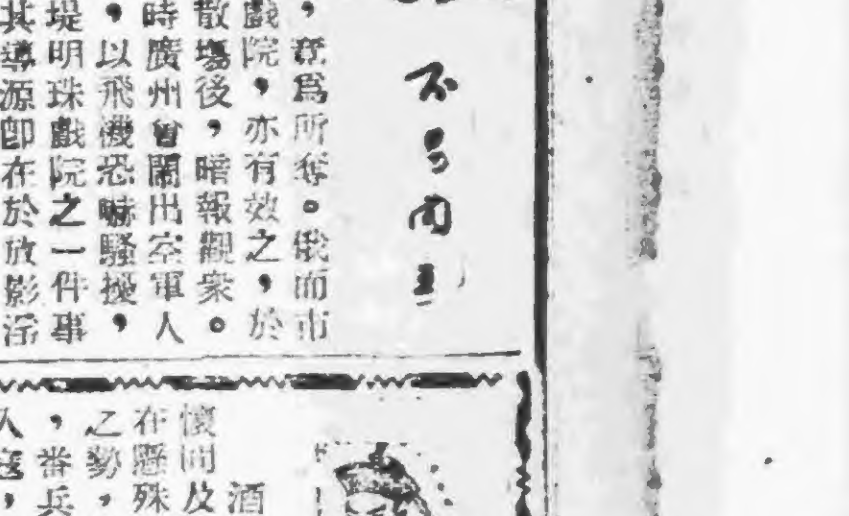 不易閣主
，竟爲所奪。俄而市
戲院，亦有效之，於
散塲後，暗報觀衆。
時廣州曾鬧出空軍人
，以飛機恐嚇騷擾，
堤明珠戲院之一件事
其導源卽在於放影淫
酒
懷間及
在懸殊
之勢，
，番兵
人寇，